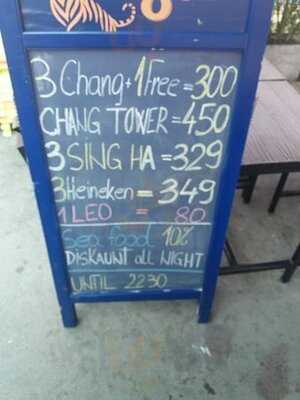 3 Chang + 1 Free = 300
CHANG TOWER = 450
3 SING HA = 329
3 Heineken = 349
1 LEO = 80
Sea food 10%
DISKAUNT all NIGHT
UNTIL 22 30